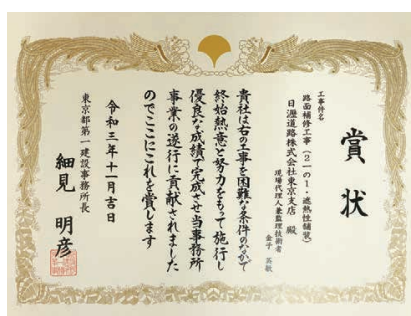 賞状
工事件名
路面補修工事(2一の1・遮熱性舗装)
日瀝道路株式会社東京支店 殿
現場代理人兼監理技術者
金子 英敏
貴社は右の工事を困難な条件のなかで
終始熱意と努力をもって施行し
優良な成績で完成させ当事務所
事業の遂行に貢献されました
のでここにこれを賞します
令和三年十一月吉日
東京都第一建設事務所長
細見 明彦